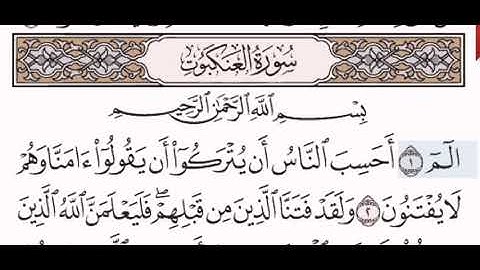 سُورَةُ الْعَنْكَبُوتِ
بِسْمِ اللَّهِ الرَّحْمَٰنِ الرَّحِيمِ
الٓمٓ ١ أَحَسِبَ ٱلنَّاسُ أَن يُتْرَكُوٓا۟ أَن يَقُولُوٓا۟ ءَامَنَّا وَهُمْ
لَا يُفْتَنُونَ ٢ وَلَقَدْ فَتَنَّا ٱلَّذِينَ مِن قَبْلِهِمْ ۖ فَلَيَعْلَمَنَّ ٱللَّهُ ٱلَّذِينَ